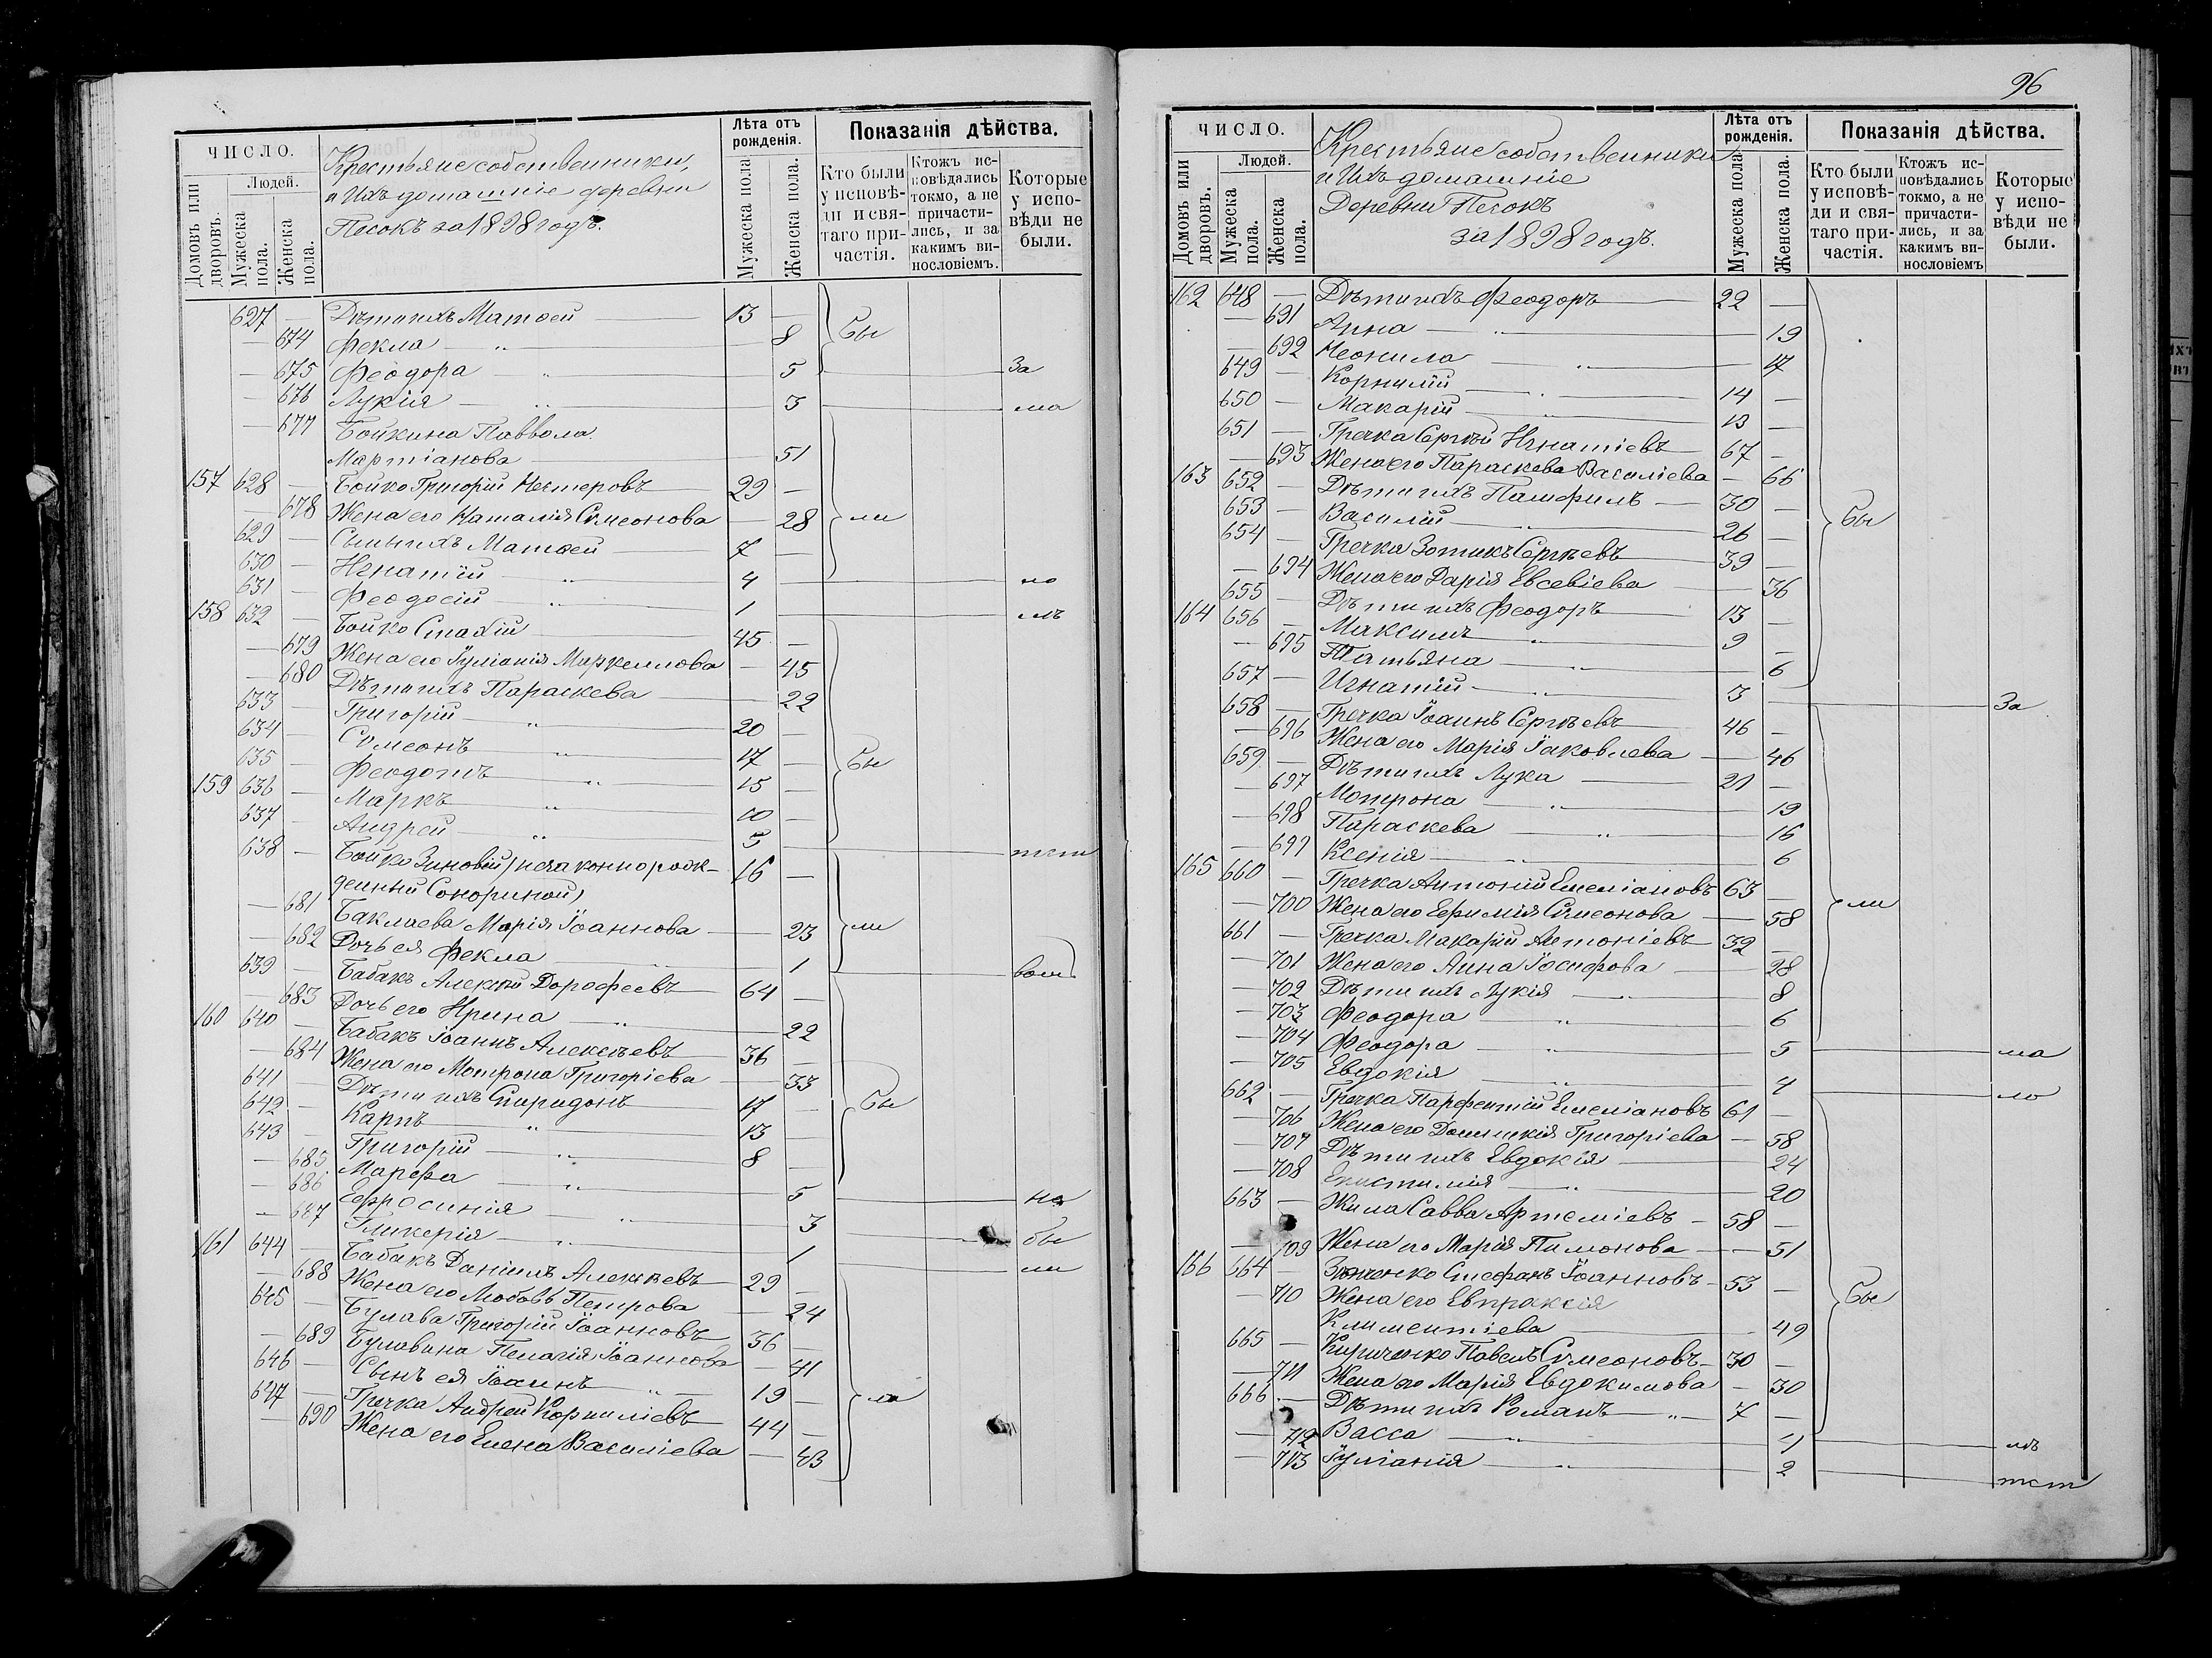 ЧИСЛО.
Домовъ или дворовъ.
Людей.
Мужеска пола.
Женска пола.
Крестьяне собственники,
и Ихъ домашніе деревни
Песокъ за 1898 годъ.
Лѣта отъ рожденія.
Мужеска пола
Женска пола.
Показанія дѣйства.
Кто были у исповѣди и святаго причастія.
Ктожъ исповѣдались токмо, а не причастились, и за какимъ винословіемъ.
Которые у исповѣди не были.
627 — Дѣти ихъ Матѳей 13 — Бы
— 674 Фекла — " — 8
— 675 Феодора — " — 5 За
— 676 Лукія — " — 3 ма
— 677 Бойкина Паввола
Мартіанова — 51
157 628 — Бойко Григорій Нестеровъ 29 —
— 678 Жена его Наталія Симеонова — 28 ли
629 — Сынъ ихъ Матѳей 7 —
630 — Игнатій — " 4 — ло
631 — Феодосій — " 1 — лѣ
158 632 — Бойко Стахій 45 —
— 679 Жена его Іуліанія Маркеллова — 45
— 680 Дѣти ихъ Параскева — 22
633 — Григорій — " 20 —
634 — Симеонъ " 17 — Бы
635 — Феодотъ " 15 —
159 636 — Маркъ " 10 —
637 — Андрей — " 5 — тст
638 — Бойко Зиновій (незаконнорож- 16 —
денный Сокориной)
— 681 Баклаева Марія Іоаннова — 23 ли
— 682 Дочь ея Фекла — 1 вот
639 — Бабакъ Алексѣй Дорофеевъ 64 —
— 683 Дочь его Ирина " — 22
160 640 — Бабакъ Іоаннъ Алексѣевъ 36 —
— 684 Жена его Мотрона Григоріева — 33
641 — Дѣти ихъ Спиридонъ 17 — Бы
642 — Карпъ " 13 —
643 — Григорій — " 8 —
— 685 Марфа " — 5 на
— 686 Ефросинія " — 3 бы
— 687 Гликерія " — 1 ли
161 644 — Бабакъ Даніилъ Алексѣевъ 29 —
— 688 Жена его Любовь Петрова — 24
645 — Булава Григорій Іоанновъ 36 —
— 689 Булавина Пелагія Іоаннова — 41
646 — Сынъ ея Іоаннъ " 19 — ли
647 — Гречка Андрей Корниліевъ 44 —
— 690 Жена его Елена Василіева — 43
96
ЧИСЛО.
Домовъ или дворовъ.
Людей.
Мужеска пола.
Женска пола.
Крестьяне собственники
и Ихъ домашніе
Деревни Песокъ
за 1898 годъ.
Лѣта отъ рожденія.
Мужеска пола
Женска пола.
Показанія дѣйства.
Кто были у исповѣди и святаго причастія.
Ктожъ исповѣдались токмо, а не причастились, и за какимъ винословіемъ
Которые у исповѣди не были.
162 648 — Дѣти ихъ Феодоръ 22 —
— 691 Анна — " — 19
— 692 Неонила " — 17
649 — Корнилій — " 14 —
650 — Макарій — " 13 —
651 — Гречка Сергѣй Игнатіевъ 67 —
— 693 Жена его Параскева Василіева — 66
163 652 — Дѣти ихъ Памфилъ 30 —
653 — Василій — " 26 — Бы
654 — Гречка Зотикъ Сергѣевъ 39 —
— 694 Жена его Дарія Евсевіева — 36
655 — Дѣти ихъ Феодоръ 13 —
164 656 — Максимъ " 9 —
— 695 Татьяна " — 6
657 — Игнатій " 3 — За
658 — Гречка Іоаннъ Сергѣевъ 46 —
— 696 Жена его Марія Іаковлева — 46
659 — Дѣти ихъ Лука 21 —
— 697 Мотрона — " — 19
— 698 Параскева — " — 16
— 699 Ксенія — " — 6
165 660 — Гречка Антоній Емеліановъ 63 —
— 700 Жена его Ефимія Симеонова — 58 ли
661 — Гречка Макарій Антоніевъ 32 —
— 701 Жена его Анна Іосифова — 28
— 702 Дѣти ихъ Лукія — " — 8
— 703 Феодора " — 6
— 704 Феодора — " — 5 ма
— 705 Евдокія " — 4 ло
662 — Гречка Парфентій Емеліановъ 61 —
— 706 Жена его Домникія Григоріева — 58
— 707 Дѣти ихъ Евдокія — 24
— 708 Епистимія " — 20
663 — Жила Савва Артеміевъ 58 —
— 709 Жена его Марія Пимонова — 51
166 664 — Стефанъ Іоанновъ 53 —
— 710 Жена его Евпраксія Бы
Климентіева — 49
665 — Кириченко Павелъ Симеоновъ 30 —
— 711 Жена его Марія Евдокимова — 30
666 — Дѣти ихъ Романъ — " 7 —
— 712 Васса — " — 4 лѣ
— 713 Іуліанія " — 2 тст